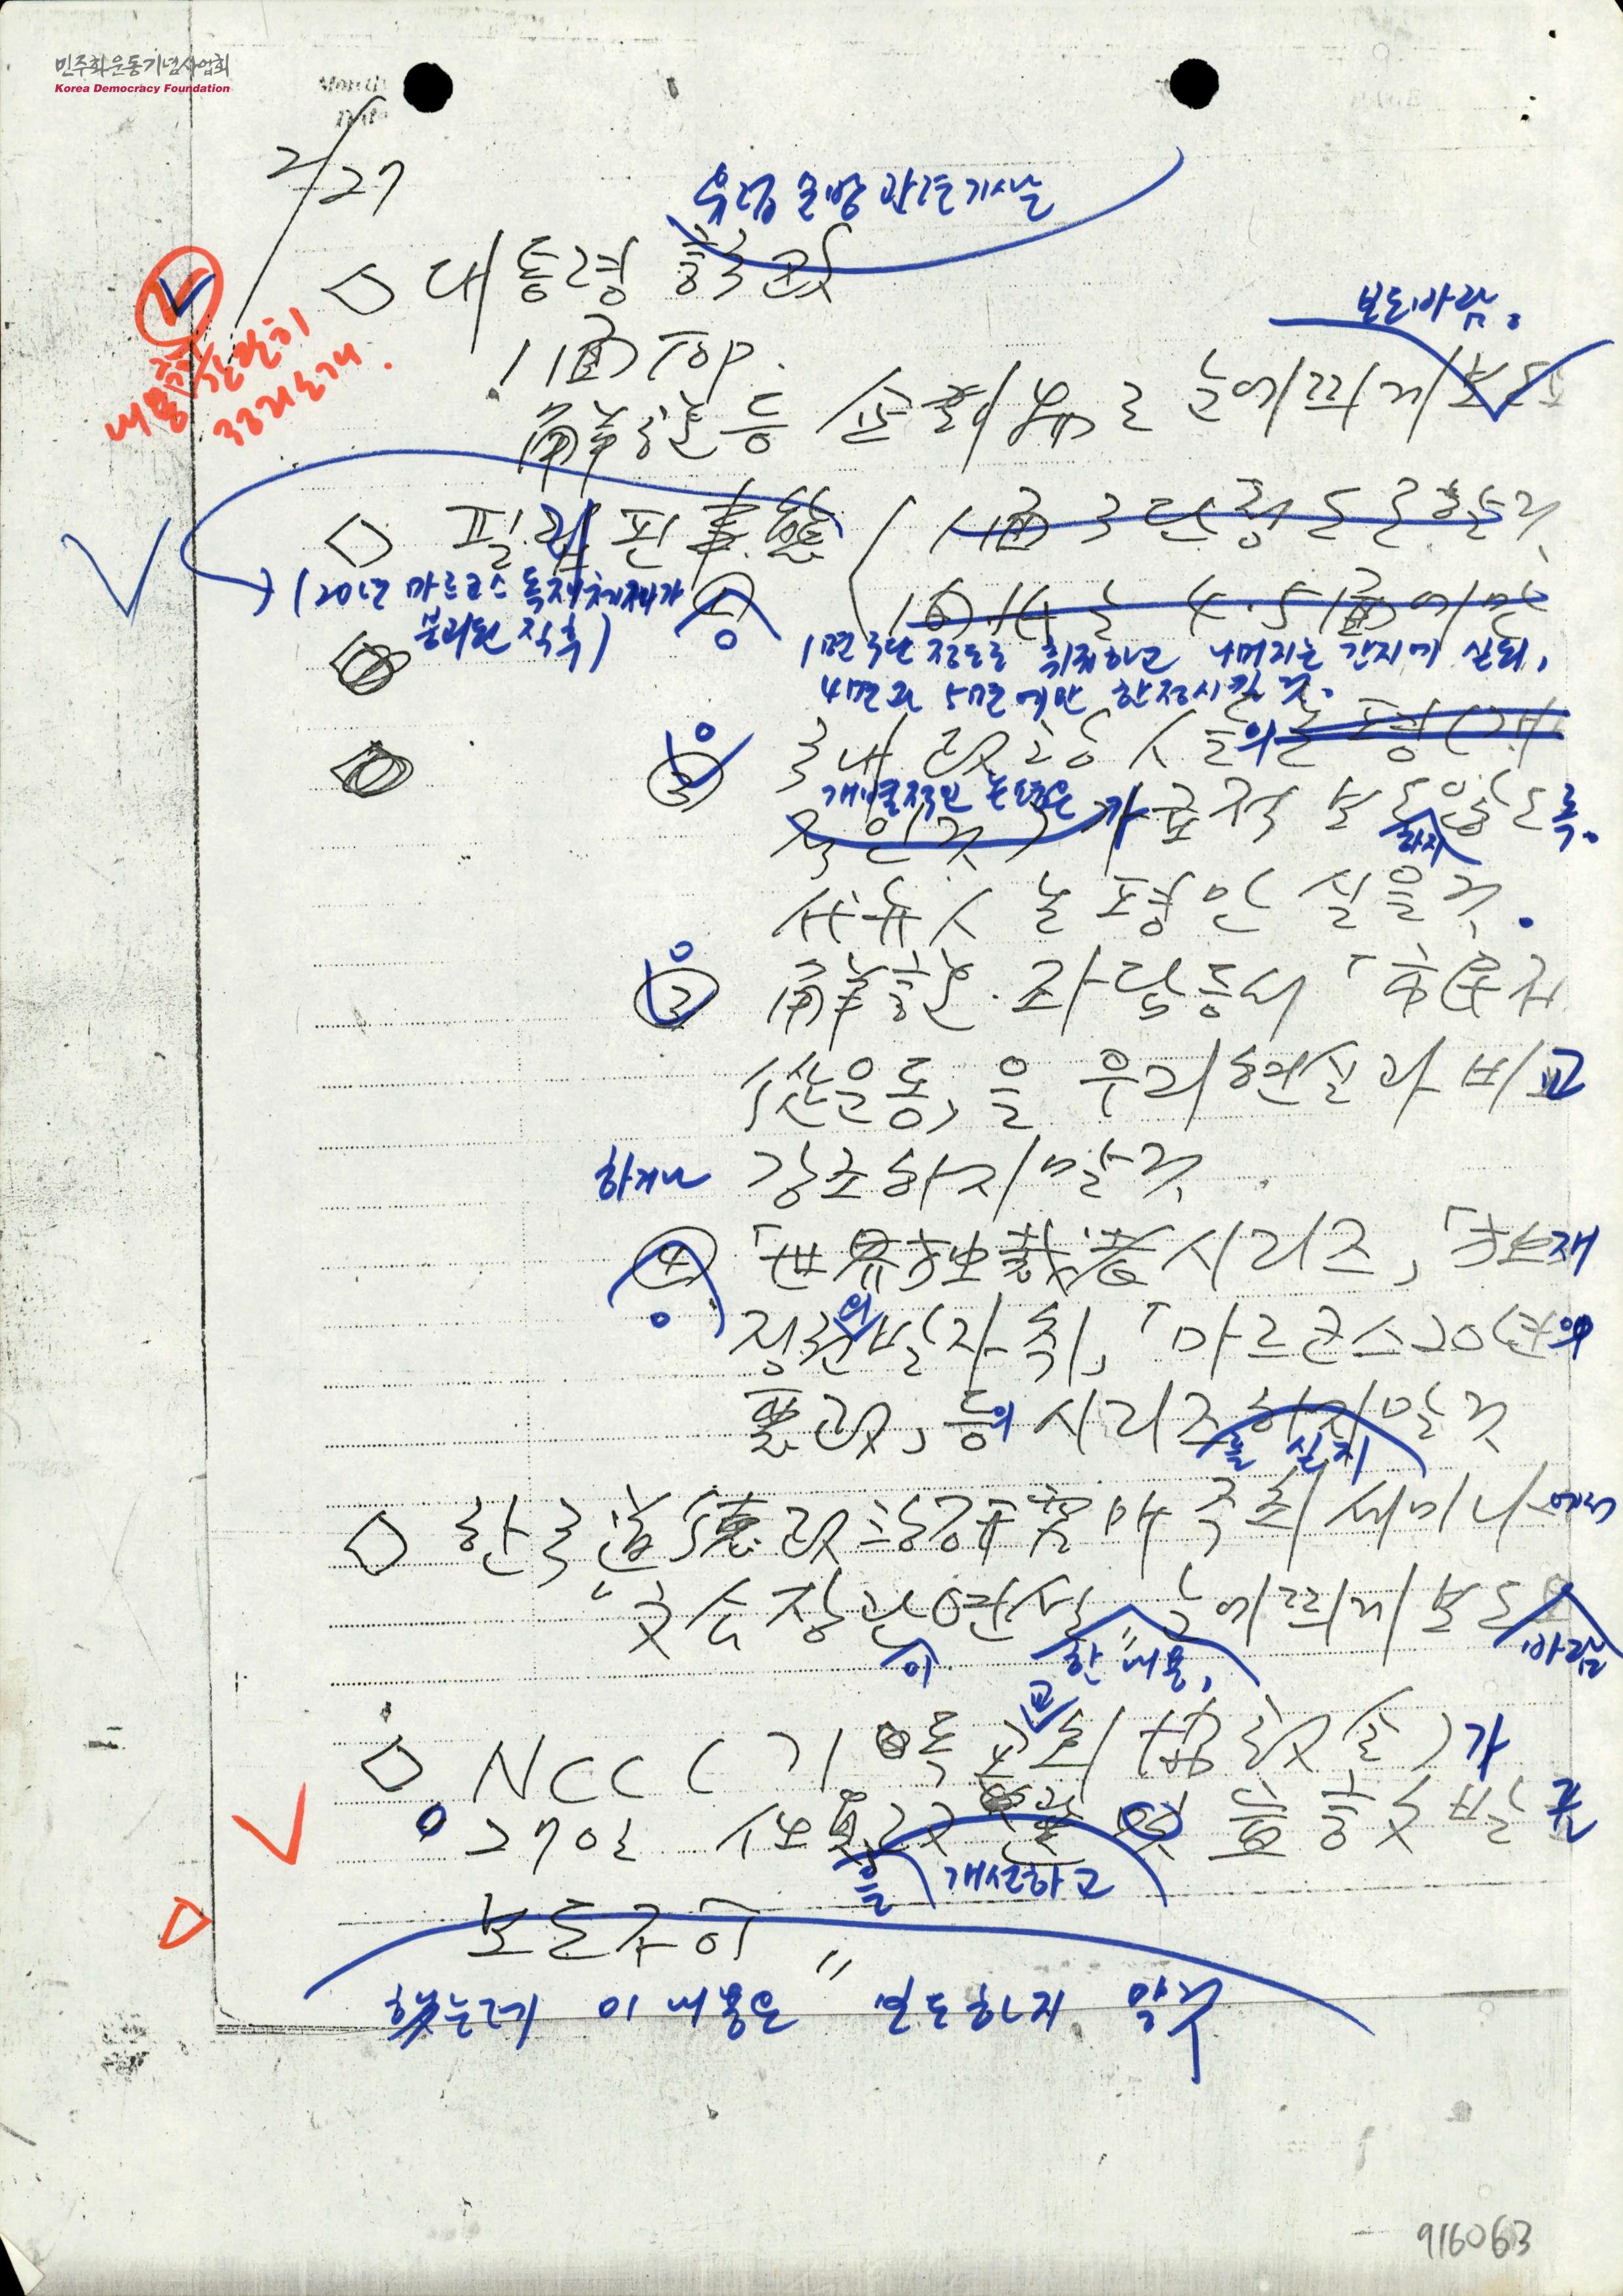 민주화운동기념사업회
Korea Democracy Foundation
Month
Date
2/27
유럽 순방 관련 기사는
◇ 대통령 訪歐
1面 TOP.
보도바람.
解說 등 企劃物로 눈에 띄게 보도
내용
◇ 필리핀 事態 1面 3단 정도로 할 것
(20년 마르코스 독재체제가
붕괴된 직후)
① 1面 4. 5面에만
1면 3단 정도로 취급하고 나머지는 간지에 실되,
4면과 5면에만 한정시킬 것.
③ 국내 政治人들의 논평(개
개별적인 논평은
적인 것) 가급적 보도않도록.
하지
美뉴스 논평만 실을 것.
② 解說. 좌담 등서 「市民 不
服從운동」을 우리 현실과 비교
하거나 강조하지 말 것
④ 「世界 独裁者 시리즈」, 「独재
정권의 발자취」, 「마르코스 20년의
惡政」 등의 시리즈 하지 말 것
를 싣지
◇ 한국 道德政治硏究所 주최 세미나에서
"文公장관 연설 눈에 띄게 보도
이 한" 내용, 바람
◇ NCC (기독교교회協議会)가
27일 및 聲討文 발표
을 개선하고
보도
했는데 이 내용은 보도하지 말 것
916063